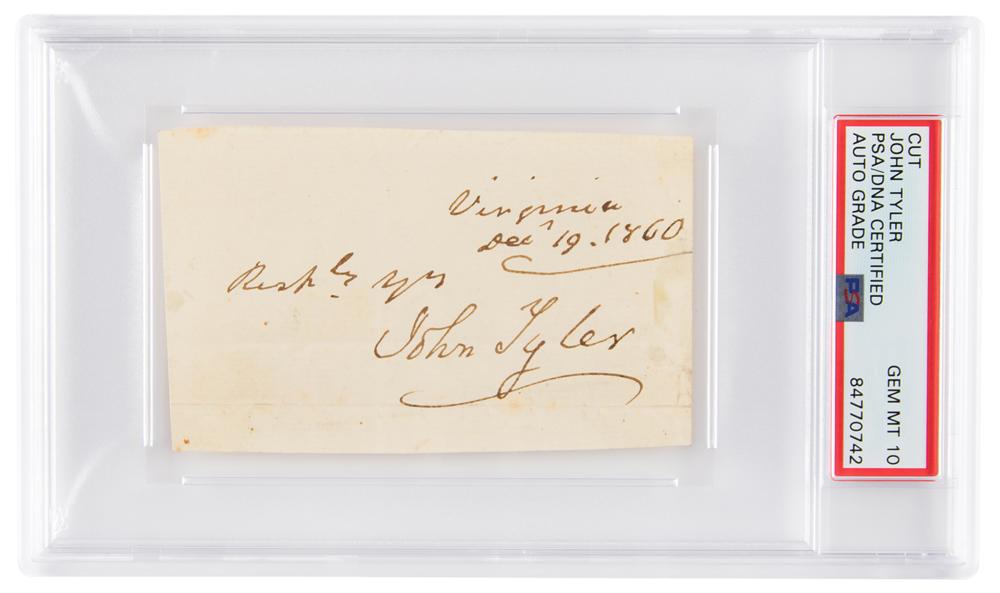 Virginia
Decr 19. 1860
Resply yrs
John Tyler
CUT
JOHN TYLER
PSA/DNA CERTIFIED
AUTO GRADE GEM MT 10
84770742
PSA